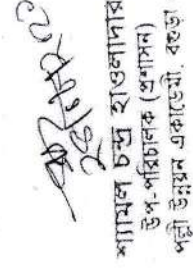 ২৪/০৮/২০২১
শ্যামল চন্দ্র হাওলাদার
উপ-পরিচালক (প্রশাসন)
পল্লী উন্নয়ন একাডেমী, বগুড়া